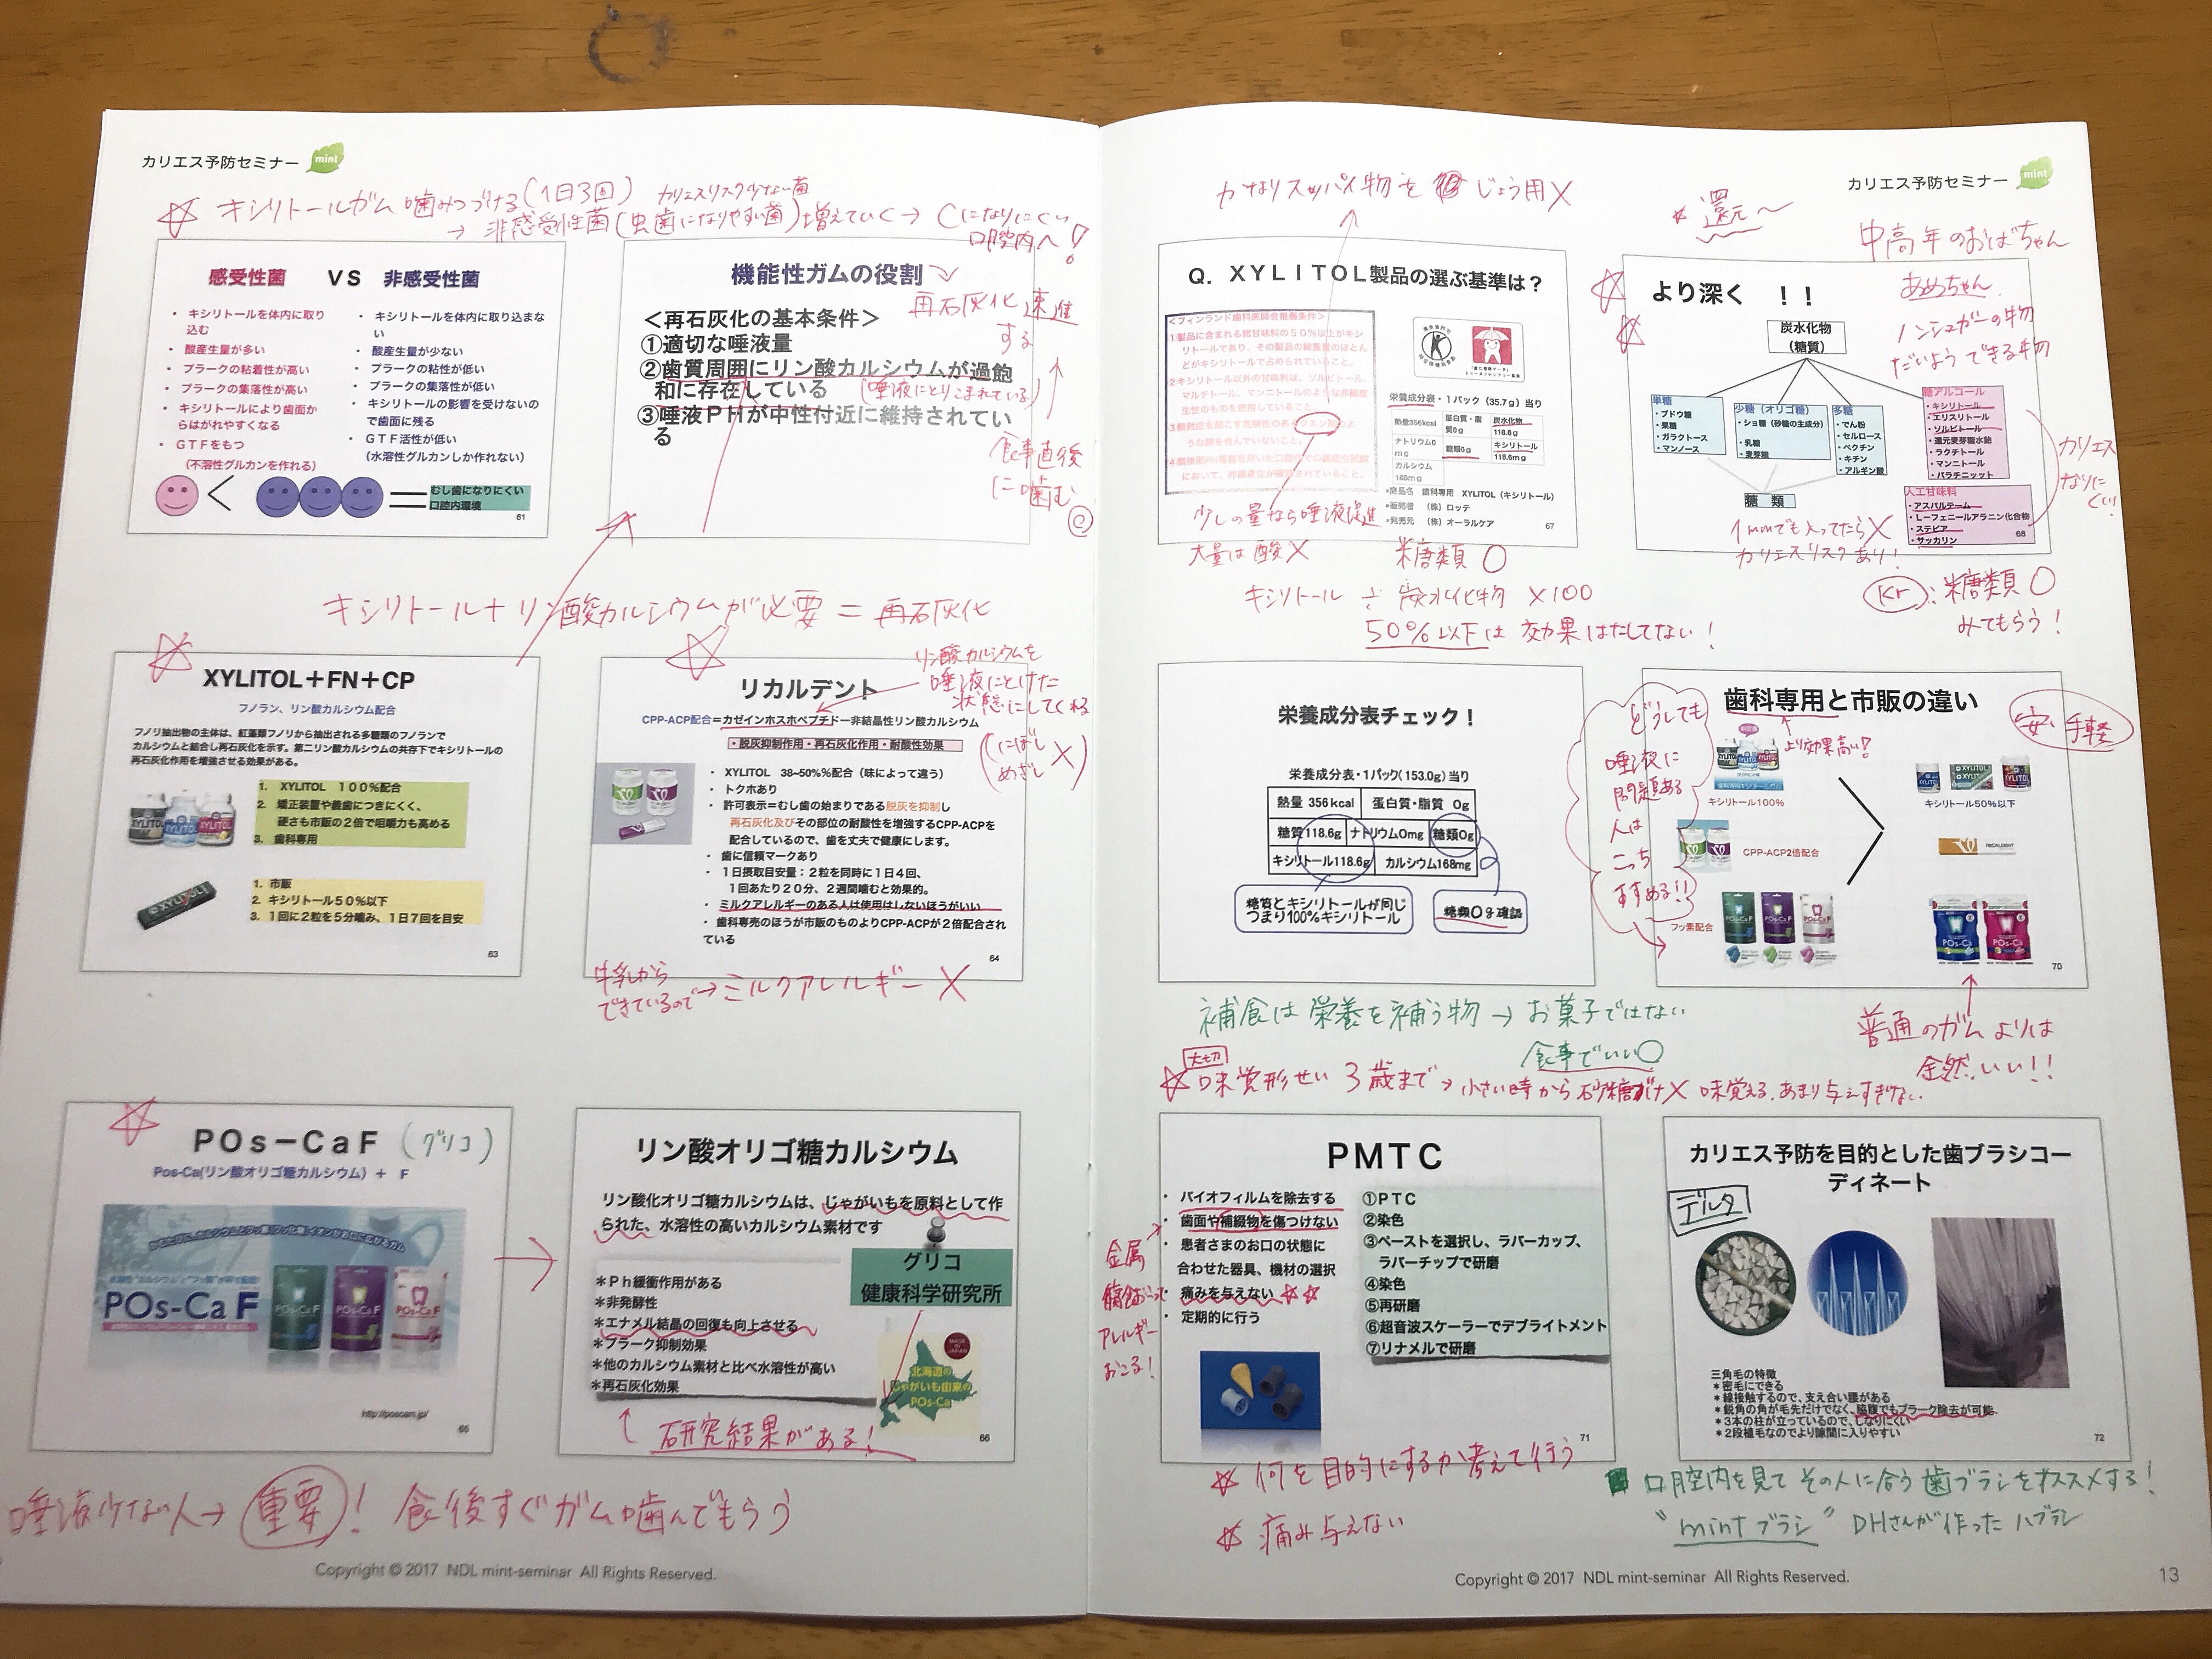 カリエス予防セミナー
mint
☆ キシリトールガム噛みつづける(1日3回) カリエスリスク少ない菌
→ 非感受性菌(虫歯になりやすい菌)増えていく→ Cになりにくい
口腔内へ!
感受性菌 VS 非感受性菌
・キシリトールを体内に取り込む
・酸産生量が多い
・プラークの粘着性が高い
・プラークの集落性が高い
・キシリトールにより歯面からはがれやすくなる
・GTFをもつ
(不溶性グルカンを作れる)
・キシリトールを体内に取り込まない
・酸産生量が少ない
・プラークの粘性が低い
・プラークの集落性が低い
・キシリトールの影響を受けないので歯面に残る
・GTF活性が低い
(水溶性グルカンしか作れない)
むし歯になりにくい
口腔内環境
61
機能性ガムの役割
再石灰化速進
する
<再石灰化の基本条件>
①適切な唾液量
②歯質周囲にリン酸カルシウムが過飽
和に存在している
(唾液にとりこまれている)
③唾液PHが中性付近に維持されてい
る
食事直後
に噛む
キシリトール+リン酸カルシウムが必要=再石灰化
XYLITOL+FN+CP
フノラン、リン酸カルシウム配合
フノリ抽出物の主体は、紅藻類フノリから抽出される多糖類のフノランで
カルシウムと結合し再石灰化を示す。第二リン酸カルシウムの共存下でキシリトールの
再石灰化作用を増強させる効果がある。
1. XYLITOL 100%配合
2. 矯正装置や義歯につきにくく、
硬さも市販の2倍で咀嚼力も高める
3. 歯科専用
1. 市販
2. キシリトール50%以下
3. 1回に2粒を5分噛み、1日7回を目安
63
リン酸カルシウムを
唾液にとけた
状態にしてくれる
リカルデント
CPP-ACP配合=カゼインホスホペプチド―非結晶性リン酸カルシウム
・脱灰抑制作用・再石灰化作用・耐酸性効果
(にぼし
めざし ×)
・XYLITOL 38~50%%配合(味によって違う)
・トクホあり
・許可表示=むし歯の始まりである脱灰を抑制し
再石灰化及びその部位の耐酸性を増強するCPP-ACPを
配合しているので、歯を丈夫で健康にします。
・歯に信頼マークあり
・1日摂取目安量:2粒を同時に1日4回、
1回あたり20分、2週間噛むと効果的。
・ミルクアレルギーのある人は使用はしないほうがいい
・歯科専売のほうが市販のものよりCPP-ACPが2倍配合され
ている
64
牛乳から
できているので→ミルクアレルギー ×
POs-CaF (グリコ)
Pos-Ca(リン酸オリゴ糖カルシウム) + F
POs-Ca F
http://poscam.jp/
65
リン酸オリゴ糖カルシウム
リン酸化オリゴ糖カルシウムは、じゃがいもを原料として作
られた、水溶性の高いカルシウム素材です
グリコ
健康科学研究所
*Ph緩衝作用がある
*非発酵性
*エナメル結晶の回復も向上させる
*プラーク抑制効果
*他のカルシウム素材と比べ水溶性が高い
*再石灰化効果
MADE IN JAPAN
北海道の
じゃがいも由来の
POs-Ca
66
研究結果がある!
唾液少ない人→重要! 食後すぐガム噛んでもらう
Copyright © 2017 NDL mint-seminar All Rights Reserved.
カリエス予防セミナー
mint
かなりスッパイ物を じょう用×
* 還元~
中高年のおばちゃん
あめちゃん
ノンシュガーの物
だいようできる物
Q. XYLITOL製品の選ぶ基準は?
<フィンランド歯科医師会推薦条件>
栄養成分表・1パック(35.7g)当り
熱量356kcal
蛋白質・脂質0g
炭水化物
118.6g
ナトリウム0mg
糖類0g
キシリトール
118.6mg
カルシウム
168mg
*商品名 歯科専用 XYLITOL(キシリトール)
*販売者 (株)ロッテ
*発売元 (株)オーラルケア
67
少しの量なら唾液促進
大量は酸×
糖類0
キシリトール÷炭水化物×100
50%以下は効果はたしてない!
より深く !!
炭水化物
(糖質)
単糖
・ブドウ糖
・果糖
・ガラクトース
・マンノース
少糖(オリゴ糖)
・ショ糖(砂糖の主成分)
・乳糖
・麦芽糖
多糖
・でん粉
・セルロース
・ペクチン
・キチン
・アルギン酸
糖アルコール
・キシリトール
・エリスリトール
・ソルビトール
・還元麦芽糖水飴
・ラクチトール
・マンニトール
・パラチニット
糖 類
人工甘味料
・アスパルテーム
・L-フェニールアラニン化合物
・ステビア
・サッカリン
68
カリエス
なりに
くい
1mmでも入ってたら×
カリエスリスクあり!
Kr:糖類0
みてもらう!
栄養成分表チェック!
栄養成分表・1パック(153.0g)当り
熱量 356kcal 蛋白質・脂質 0g
糖質118.6g ナトリウム0mg 糖類0g
キシリトール118.6g カルシウム168mg
糖質とキシリトールが同じ
つまり100%キシリトール
糖類0g確認
歯科専用と市販の違い
より効果高い!
安い 手軽
どうしても
唾液に
問題ある
人は
こっち
すすめる!!
キシリトール100%
キシリトール50%以下
CPP-ACP2倍配合
RECALDENT
フッ素配合
POs-Ca
70
普通のガムよりは
全然いい!!
補食は栄養を補う物→お菓子ではない
食事でいい○
大切
☆味覚形せい 3歳まで→小さい時から砂糖だけ× 味覚える、あまり与えすぎない
PMTC
・バイオフィルムを除去する
・歯面や補綴物を傷つけない
・患者さまのお口の状態に
合わせた器具、機材の選択
・痛みを与えない ☆☆
・定期的に行う
①PTC
②染色
③ペーストを選択し、ラバーカップ、
ラバーチップで研磨
④染色
⑤再研磨
⑥超音波スケーラーでデブライトメント
⑦リナメルで研磨
71
金属
アレルギー
おこる!
☆ 何を目的にするか考えて行う
☆ 痛み与えない
カリエス予防を目的とした歯ブラシコー
ディネート
デルタ
三角毛の特徴
*密毛にできる
*線接触するので、支え合い腰がある
*鋭角の角が毛先だけでなく、脇腹でもプラーク除去が可能
*3本の柱が立っているので、しなりにくい
*2段植毛なのでより隙間に入りやすい
72
口腔内を見てその人に合う歯ブラシをオススメする!
"mintブラシ" DHさんが作ったハブラシ
Copyright © 2017 NDL mint-seminar All Rights Reserved.
13